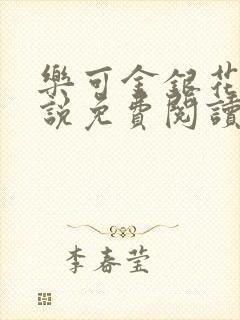 樂可金銀花
說免費閱讀
李春莹